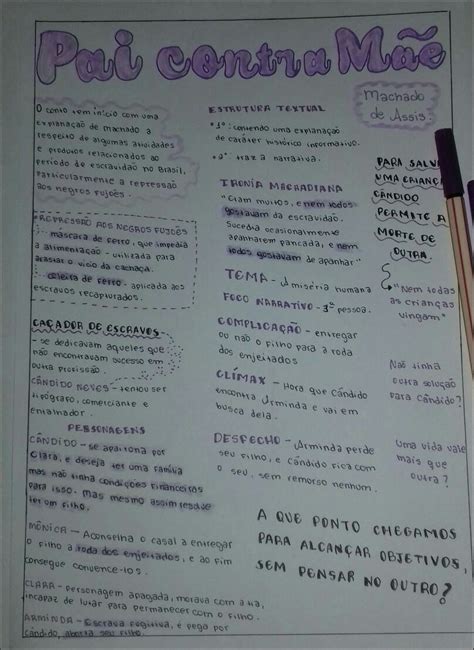 Pai contra Mãe
Machado
de Assis
O conto tem início com uma
explanação de machado a
respeito de algumas atividades
e produtos relacionados ao
período de escravidão no Brasil,
particularmente a repressão
aos negros fujões.
REPRESSÃO AOS NEGROS FUJÕES
máscara de ferro, que impedia
a alimentação - utilizada para
afastar o vício da cachaça.
coleira de ferro - aplicada aos
escravos recapturados.
CAÇADOR DE ESCRAVOS
- se dedicavam aqueles que
não encontravam sucesso em
outra profissão.
CÂNDIDO NEVES - tentou ser
tipógrafo, comerciante e
entalhador.
PERSONAGENS
CÂNDIDO - se apaixona por
Clara, e deseja ter uma família
mas não tinha condições financeiras
para isso. Mas mesmo assim resolve
ter um filho.
MÔNICA - Aconselha o casal a entregar
o filho a roda dos enjeitados, e ao fim
consegue convence-los.
CLARA - personagem apagada, morava com a tia,
incapaz de lutar para permanecer com o filho.
ARMINDA - Escrava fugitiva, é pega por
cândido, aborta seu filho.
ESTRUTURA TEXTUAL
• 1º: contendo uma explanação
de caráter histórico informativo.
• 2º traz a narrativa.
IRONIA MACHADIANA
"Eram muitos, e nem todos
gostavam da escravidão.
Sucedia ocasionalmente
apanharem pancada, e nem
todos gostavam de apanhar"
TEMA - A miséria humana
FOCO NARRATIVO - 3ª pessoa.
COMPLICAÇÃO - entregar
ou não o filho para a roda
dos enjeitados
CLÍMAX - Hora que Cândido
encontra Arminda e vai em
busca dela.
DESFECHO - Arminda perde
seu filho, e Cândido fica com
o seu, sem remorso nenhum.
PARA SALVAR
UMA CRIANÇA
CÂNDIDO
PERMITE A
MORTE DE
OUTRA.
"Nem todas
as crianças
vingam"
Não tinha
outra solução
para Cândido?
Uma vida vale
mais que
outra?
A QUE PONTO CHEGAMOS
PARA ALCANÇAR OBJETIVOS,
SEM PENSAR NO OUTRO?